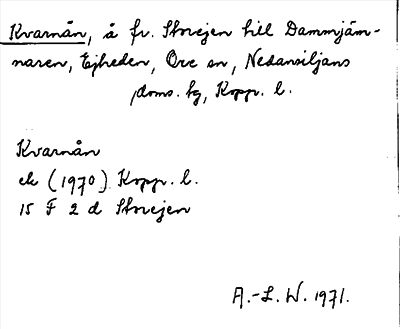 Kvarnån, å fr. Storejen till Dammjäm-
naren, Ejheden, Ore sn, Nedansiljans
doms. hg, Kopp. l.
Kvarnån
ek (1970) Kopp. l.
15 F 2 d Storejen
A.-L. W. 1971.